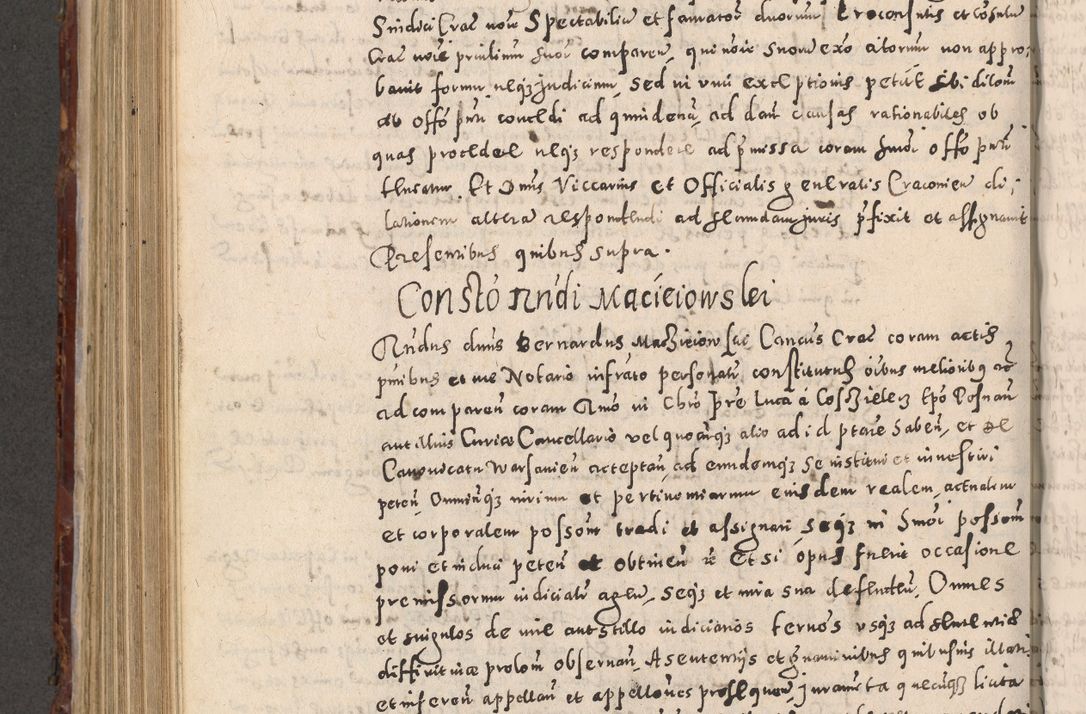 Sindici Crac noie Spectabiliu et famatoru duorum Proconsulis et cosulu
Crac noie principum suoru comparen, qui noie suoru exo actorum non appro,
bavit formu neqz judicium, sed in vim exceptionis petiit sibi dilom
ab offo pnti concedi ad quindena, ad dan causas rationabiles ob
quas procedere neqz respondere ad pmissa coram hmoi offo pnti
teneatur. Et Dnus Viccarius et Officialis generalis Cracovien di,
lationem altera respondendi ad secundam juris pfixit et assignavit
Presentibus quibus supra.
Consto Rndi Macieiowski
Rndus dnus Bernardus Maczieiowski Canicus Crac coram actis
pntibus et me Notario infrato personalr constitutus oibus melioribq etc
ad comparen coram Rmo in Chro Pre Luca a Cosczielecz Epo Posnan
aut illius Curiae Cancellario vel quocuqz alio ad id ptate haben, et de
Canonicatu Warsavien acceptan, ad eumdemqz se institui et investiri
peten, Omniuqz iurium et pertinentiarum eiusdem realem, actualem
et corporalem possom tradi et assignari, seqz in hmoi possom
poni et induci peten et obtinen &c Et si opus fuerit occasione
premissorum iudicialr agen, seqz et iura sua defenden, Omnes
et singulos de iure aut stillo iudiciarios terminos usqz ad sententiae
diffinitivae prolom observan, A sententiis et gravaminibus quibusuis illatis
et inferen appellan et appellones prosequen, juramenta quecuqz licita